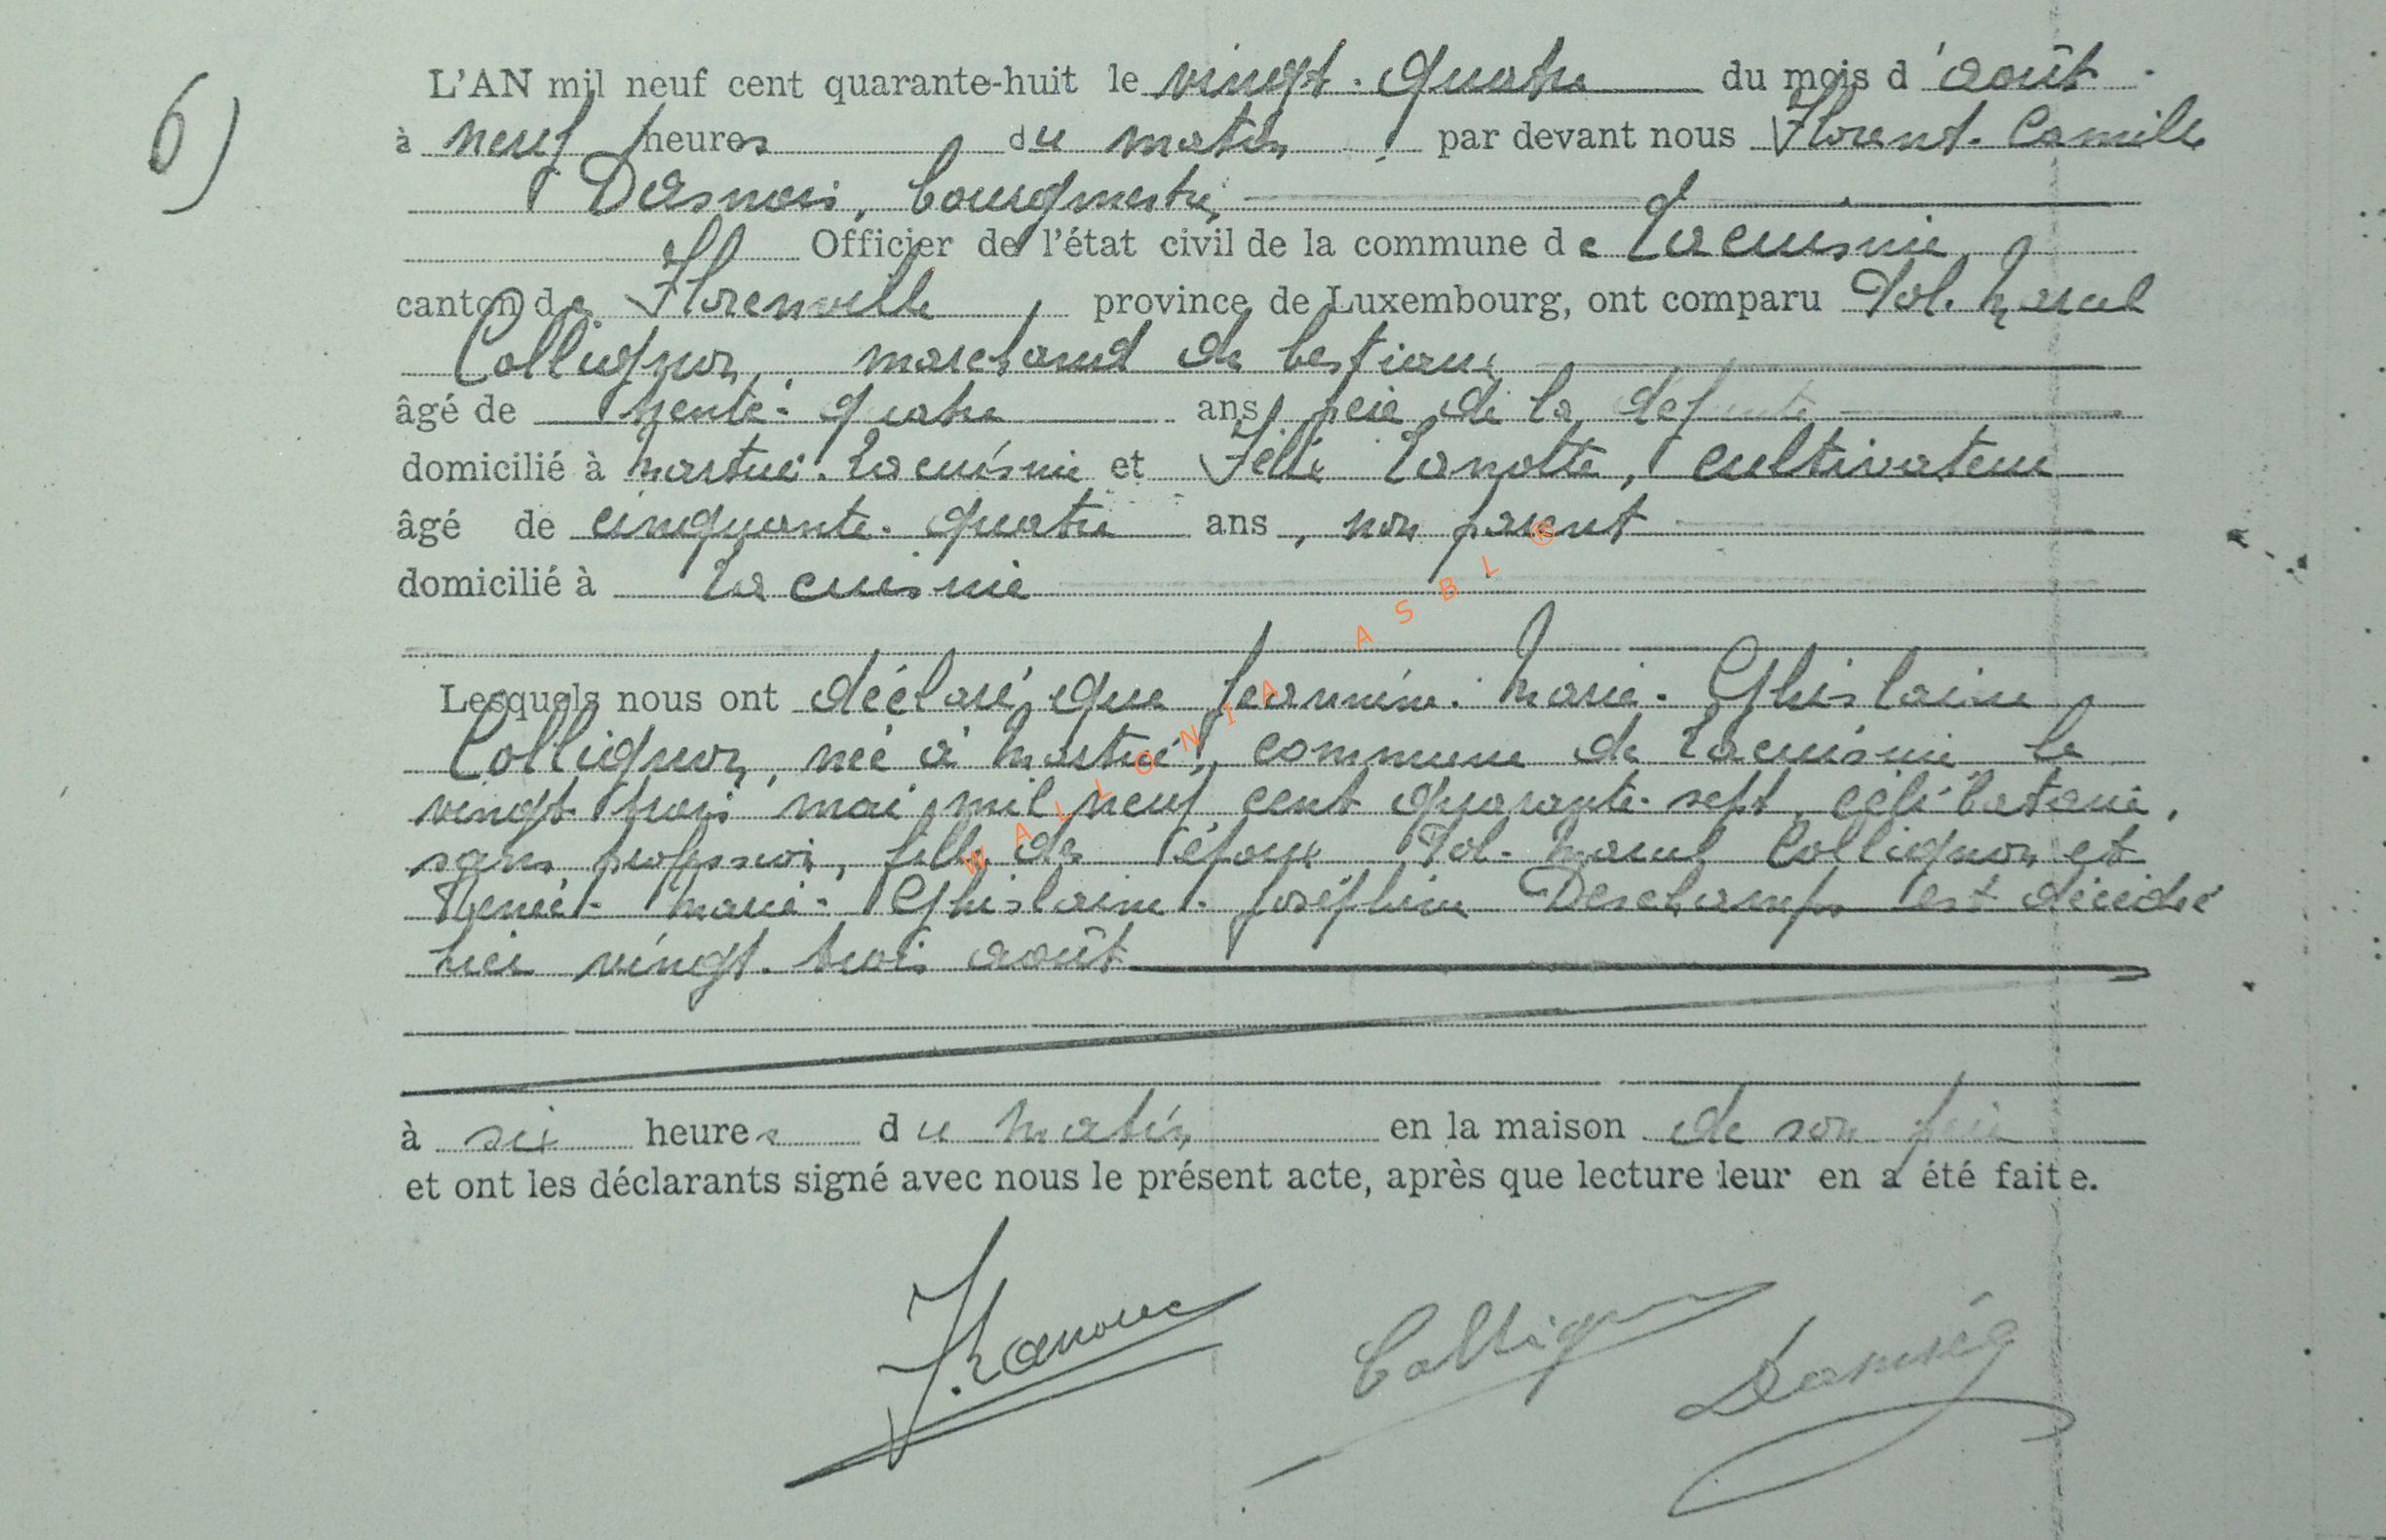 6)
L'AN mil neuf cent quarante-huit le vingt-quatre du mois d'août
à neuf heures du matin, par devant nous Florent-Camille
bourgmestre,
Officier de l'état civil de la commune de Lacuisine
canton de Florenville, province de Luxembourg, ont comparu Marcel
Collignon, marchand de bestiaux
âgé de trente-quatre ans, père de la défunte
domicilié à Martué-Lacuisine et cultivateur
âgé de cinquante-quatre ans, non parent
domicilié à Lacuisine
Lesquels nous ont déclaré que Jeannine-Marie-Ghislaine
Collignon, née à Martué, commune de Lacuisine le
vingt trois mai mil neuf cent quarante-sept, célibataire,
sans profession, fille de Marcel Collignon et
Renée-Marie-Ghislaine-Joséphine Deschamps est décédée
hier vingt-trois août
à six heures du matin en la maison de son père
et ont les déclarants signé avec nous le présent acte, après que lecture leur en a été faite.
Collignon
WALLONIA ASBL ®